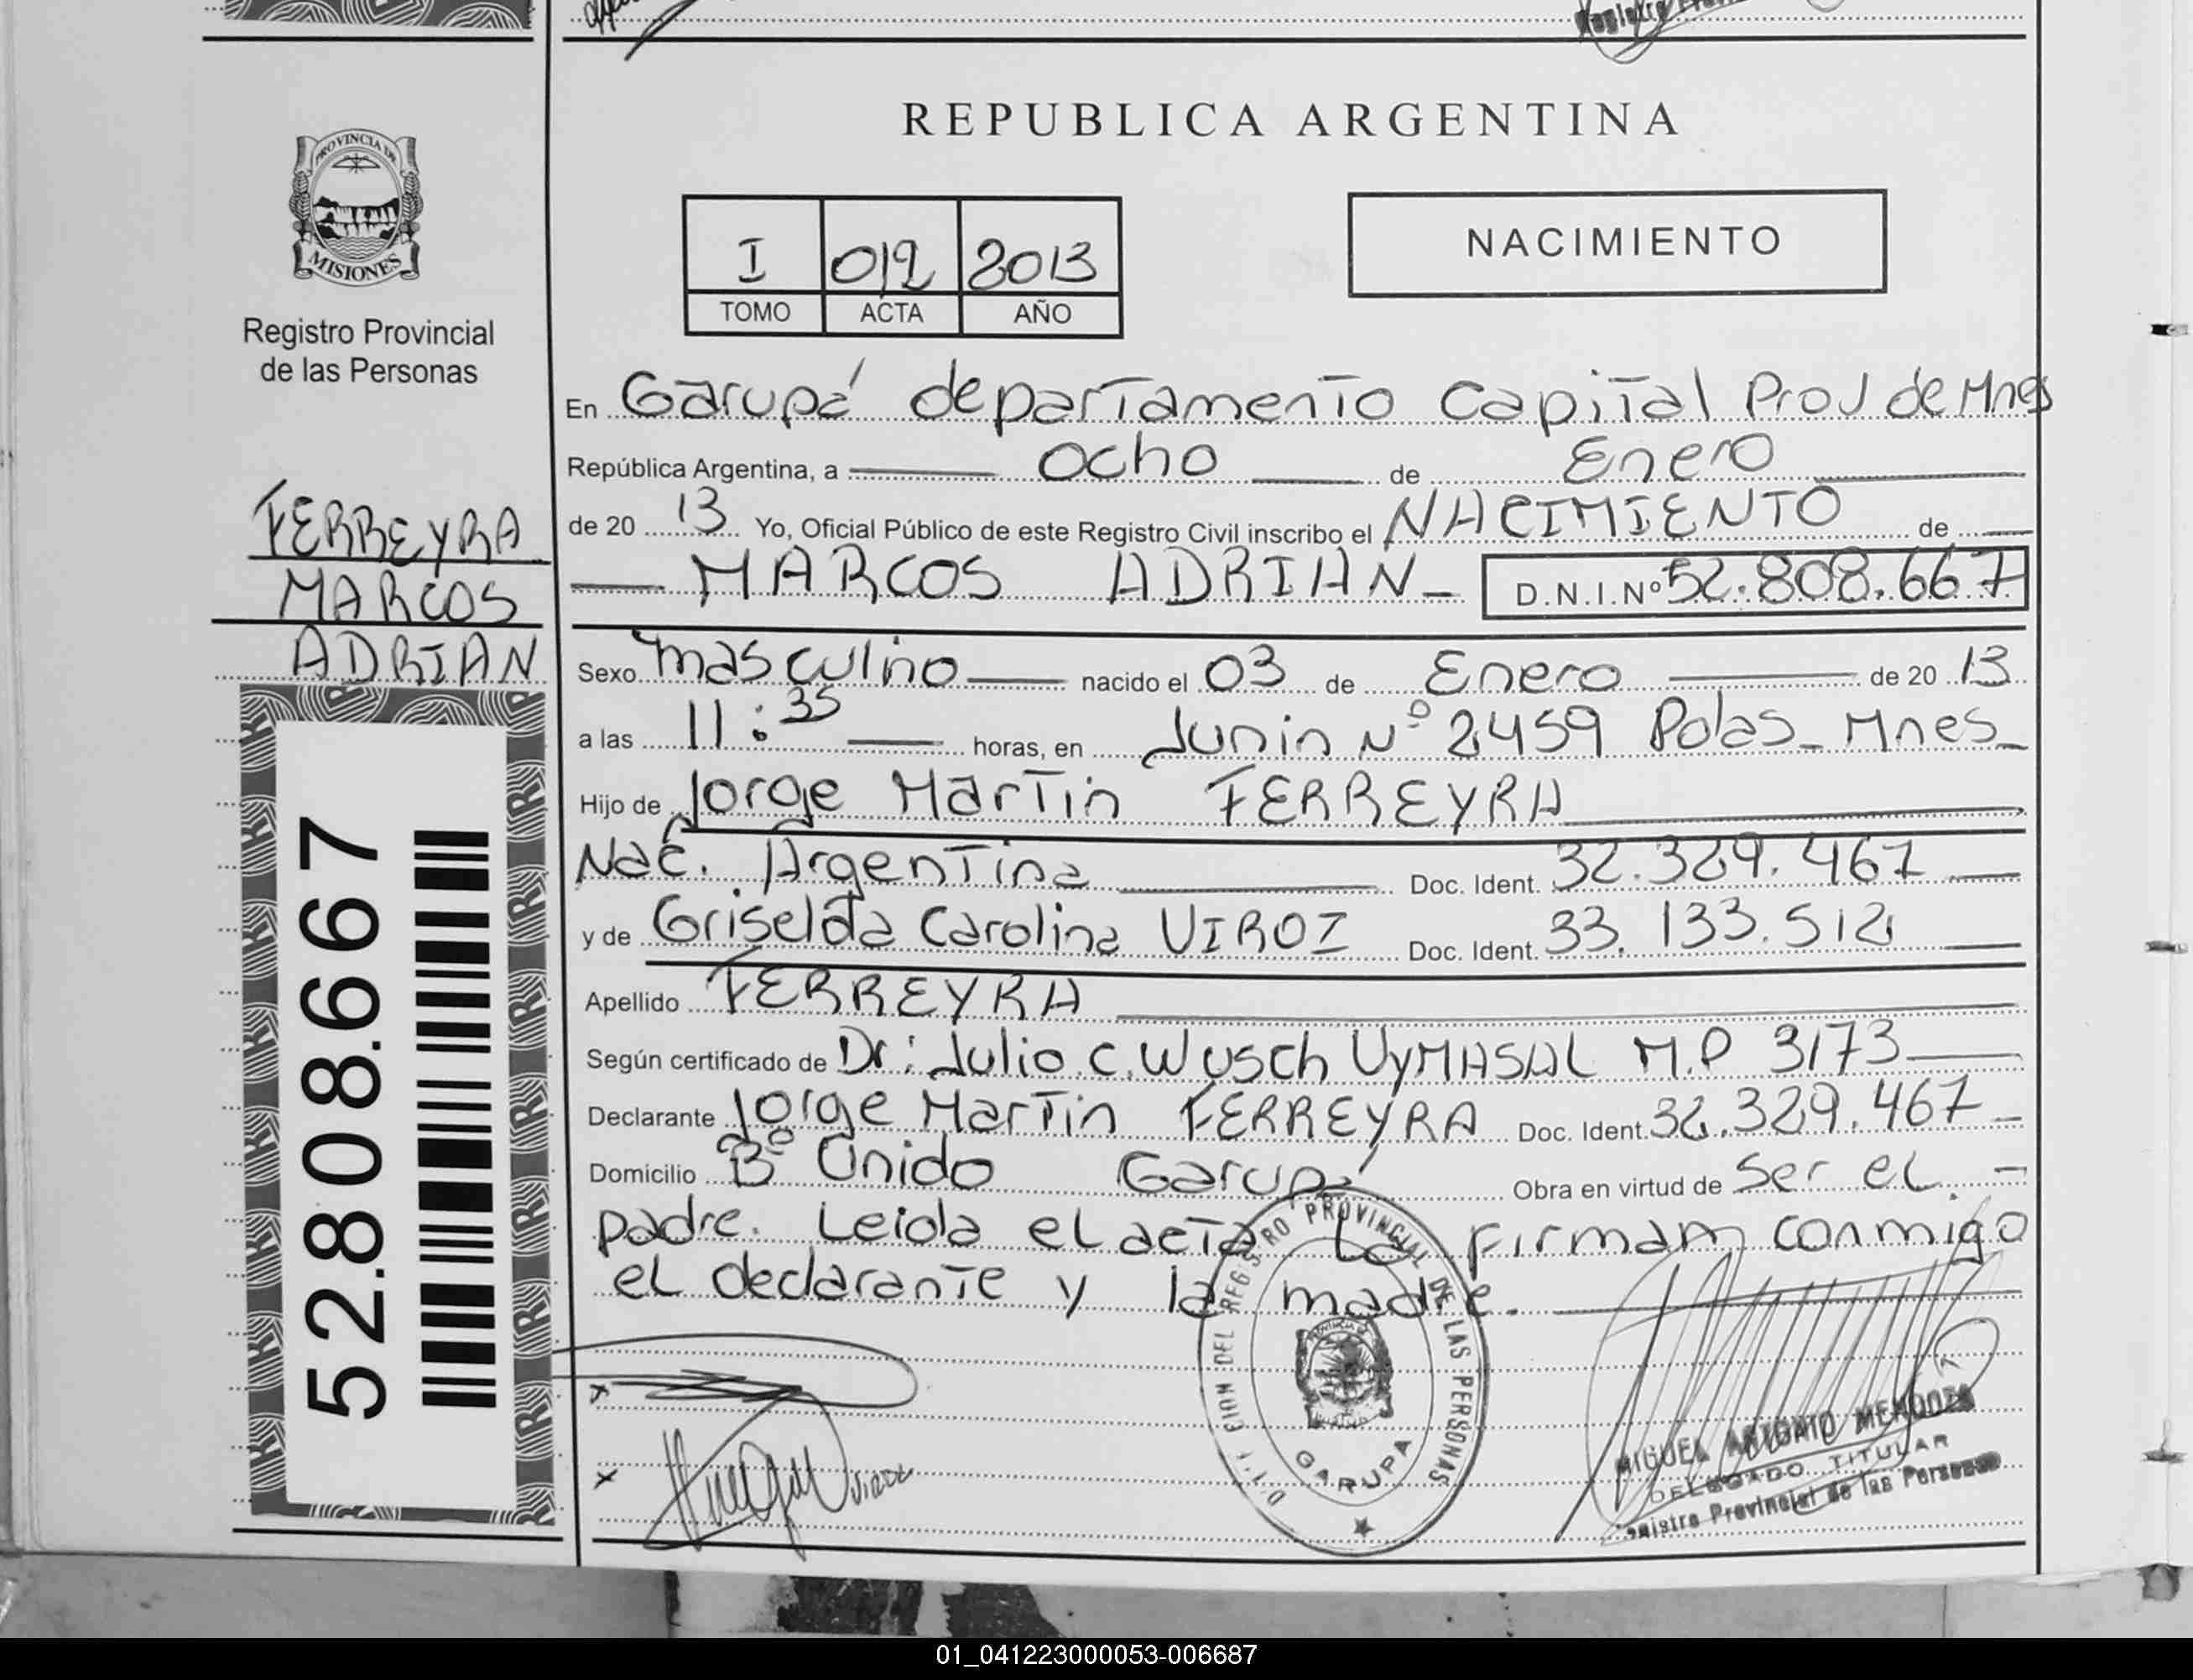 PROVINCIA DE
MISIONES
Registro Provincial
de las Personas
FERREYRA
MARCOS
ADRIAN
52.808.667
REPUBLICA ARGENTINA
I 012 2013
TOMO ACTA AÑO
NACIMIENTO
En Garupá departamento Capital Prov de Mnes
República Argentina, a ocho de Enero
de 20 13 Yo, Oficial Público de este Registro Civil inscribo el NACIMIENTO de
MARCOS ADRIAN - D.N.I.Nº 52.808.667
Sexo masculino nacido el 03 de Enero de 20 13
a las 11:35 horas, en Junin Nº 2459 Pdas - Mnes -
Hijo de Jorge Martin FERREYRA
Nac. Argentina Doc. Ident. 32.329.467
y de Griselda Carolina VIROZ Doc. Ident. 33.133.512
Apellido FERREYRA
Según certificado de Dr: Julio C. Wusch UyMASAL M.P 3173
Declarante Jorge Martin FERREYRA Doc. Ident. 32.329.467 -
Domicilio Bº Unido Garupá Obra en virtud de ser el. -
padre. Leida el acta la firmam conmigo
el declarante y la madre.
REGISTRO PROVINCIAL DE LAS PERSONAS
GARUPA
MIGUEL ANTONIO MENDOZA
DELEGADO TITULAR
Registro Provincial de las Personas
01_041223000053-006687